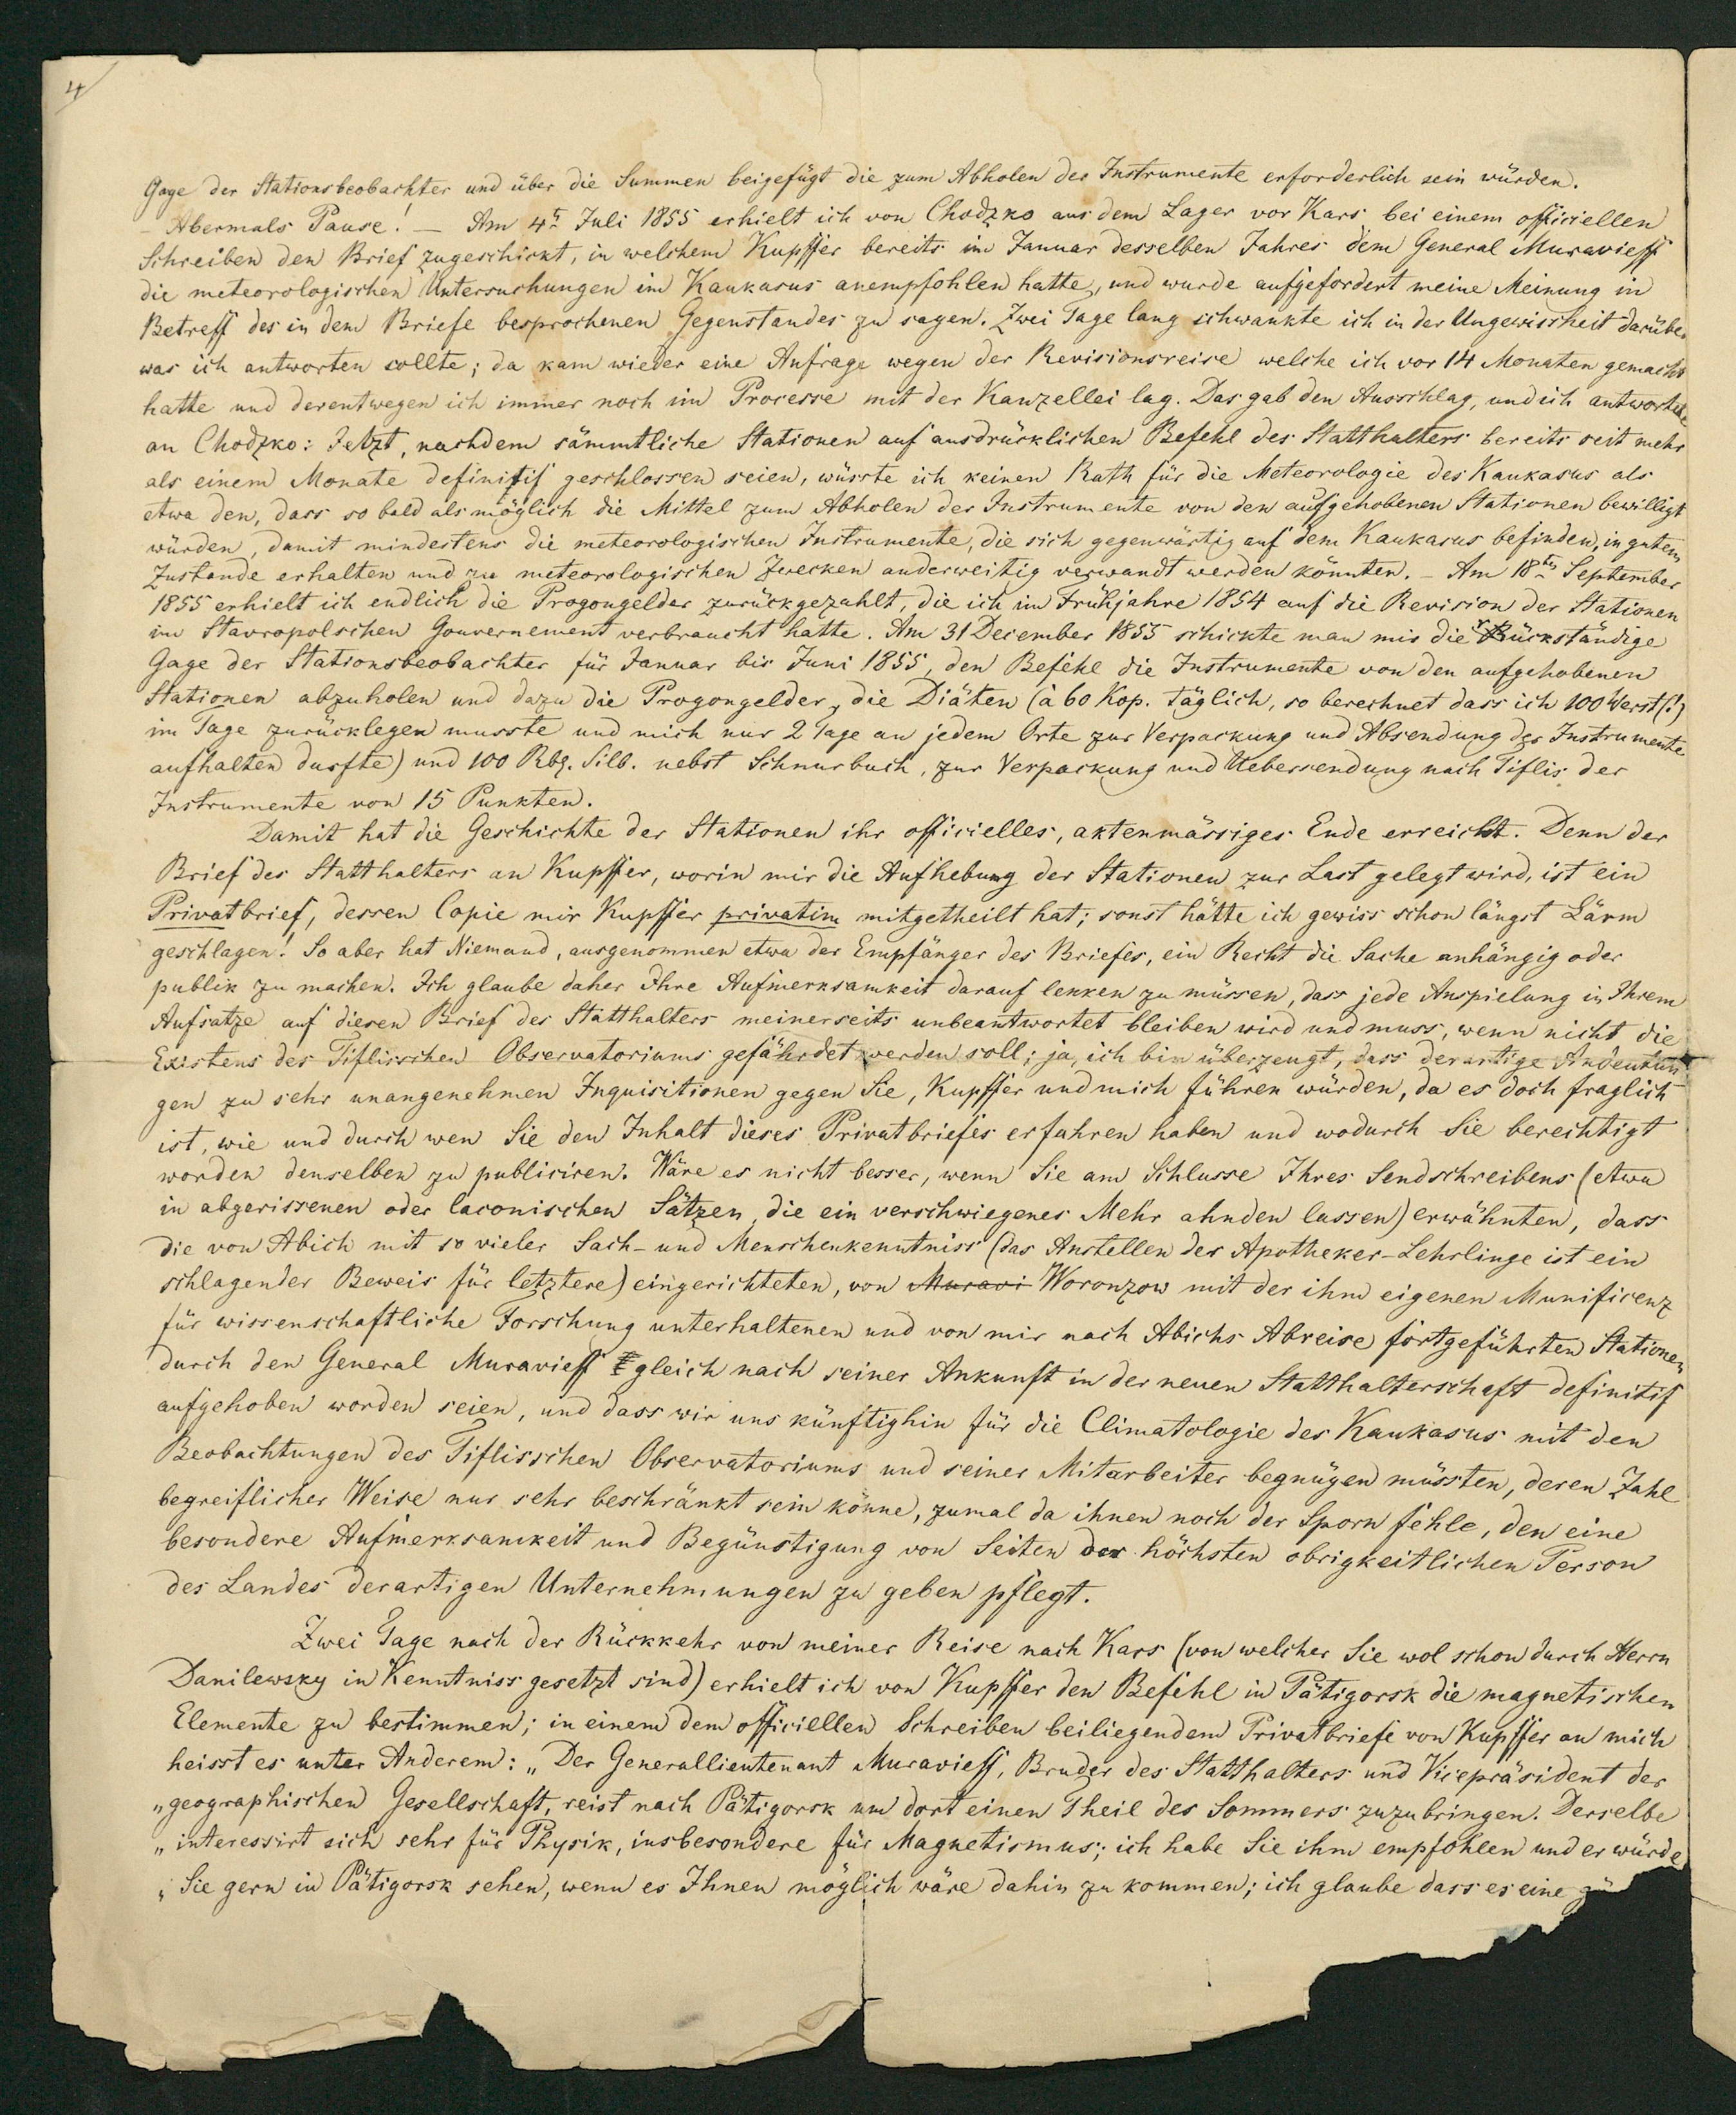 4
Gage der Stationsbeobachter und über die Summen beigefügt die zum Abholen der Instrumente erforderlich sein würden.
– Abermals Pause! – Am 4t Juli 1855 erhielt ich von Chodzko aus dem Lager vor Kars bei einem officiellen
Schreiben den Brief zugeschickt, in welchem Kupffer bereits im Januar desselben Jahres dem General Muravieff
die meteorologischen Untersuchungen im Kaukasus anempfohlen hatte, und wurde aufgefordert meine Meinung in
Betreff des in dem Briefe besprochenen Gegenstandes zu sagen. Zwei Tage lang schwankte ich in der Ungewissheit darüber
was ich antworten sollte; da kam wieder eine Anfrage wegen der Revisionsreise welche ich vor 14 Monaten gemacht
hatte und derentwegen ich immer noch im Processe mit der Kanzellei lag. Das gab den Ausschlag, und ich antwortete
an Chodzko: Jetzt, nachdem sämmtliche Stationen auf ausdrücklichen Befehl des Statthalters bereits seit mehr
als einem Monate definitif geschlossen seien, wüsste ich keinen Rath für die Meteorologie des Kaukasus als
etwa den, dass so bald als möglich die Mittel zum Abholen der Instrumente von den aufgehobenen Stationen bewilligt
würden, damit mindestens die meteorologischen Instrumente, die sich gegenwärtig auf dem Kaukasus befinden, in gutem
Zustande erhalten und zu meteorologischen Zwecken anderweitig verwandt werden könnten. – Am 18ten September
1855 erhielt ich endlich die Progongelder zurückgezahlt, die ich im Frühjahre 1854 auf die Revision der Stationen
im Stavropolschen Gouvernement verbraucht hatte. Am 31 December 1855 schickte man mir die rückständige
Gage der Stationsbeobachter für Januar bis Juni 1855, den Befehl die Instrumente von den aufgehobenen
Stationen abzuholen und dazu die Progongelder, die Diäten (à 60 Kop. täglich, so berechnet dass ich 100 Werst (!)
im Tage zurücklegen musste und mich nur 2 Tage an jedem Orte zur Verpackung und Absendung der Instrumente
aufhalten durfte) und 100 Rbl. Silb. nebst Schnurbuch, zur Verpackung und Uebersendung nach Tiflis der
Instrumente von 15 Punkten.
Damit hat die Geschichte der Stationen ihr officielles, aktenmässiges Ende erreicht. Denn der
Brief des Statthalters an Kupffer, worin mir die Aufhebung der Stationen zur Last gelegt wird, ist ein
Privatbrief, dessen Copie mir Kupffer privatim mitgetheilt hat; sonst hätte ich gewiss schon längst Lärm
geschlagen! So aber hat Niemand, ausgenommen etwa der Empfänger des Briefes, ein Recht die Sache anhängig oder
publik zu machen. Ich glaube daher Ihre Aufmerksamkeit darauf lenken zu müssen, dass jede Anspielung in Ihrem
Aufsatze auf diesen Brief des Statthalters meinerseits unbeantwortet bleiben wird und muss, wenn nicht die
Existens des Tiflisschen Observatoriums gefährdet werden soll; ja, ich bin überzeugt, dass derartige Andeutun
gen zu sehr unangenehmen Inquisitionen gegen Sie, Kupffer und mich führen würden, da es doch fraglich
ist, wie und durch wen Sie den Inhalt dieses Privatbriefes erfahren haben und wodurch Sie berechtigt
worden denselben zu publiciren. Wäre es nicht besser, wenn Sie am Schlusse Ihres Sendschreibens (etwa
in abgerissenen oder laconischen Sätzen, die ein verschwiegenes Mehr ahnden lassen) erwähnten, dass
die von Abich mit so vieler Sach- und Menschenkenntniss (das Anstellen der Apotheker-Lehrlinge ist ein
schlagender Beweis für letztere) eingerichteten, von Muravi Woronzow mit der ihm eigenen Munificenz
für wissenschaftliche Forschung unterhaltenen und von mir nach Abichs Abreise fortgeführten Stationen
durch den General Muravieff gleich nach seiner Ankunft in der neuen Statthalterschaft definitif
aufgehoben worden seien, und dass wir uns künftighin für die Climatologie des Kaukasus mit den
Beobachtungen des Tiflisschen Observatoriums und seiner Mitarbeiter begnügen müssten, deren Zahl
begreiflicher Weise nur sehr beschränkt sein könne, zumal da ihnen noch der Sporn fehle, den eine
besondere Aufmerksamkeit und Begünstigung von Seiten der höchsten obrigkeitlichen Person
des Landes derartigen Unternehmungen zu geben pflegt.
Zwei Tage nach der Rückkehr von meiner Reise nach Kars (von welcher Sie wol schon durch Herrn
Danilewsky in Kenntniss gesetzt sind) erhielt ich von Kupffer den Befehl in Pätigorsk die magnetischen
Elemente zu bestimmen; in einem dem officiellen Schreiben beiliegendem Privatbriefe von Kupffer an mich
heisst es unter Anderem: „Der Generallieutenant Muravieff, Bruder des Statthalters und Vicepräsident der
„geographischen Gesellschaft, reist nach Pätigorsk um dort einen Theil des Sommers zuzubringen. Derselbe
„interessirt sich sehr für Physik, insbesondere für Magnetismus; ich habe Sie ihm empfohlen und er würde
„Sie gern in Pätigorsk sehen, wenn es Ihnen möglich wäre dahin zu kommen; ich glaube dass es eine